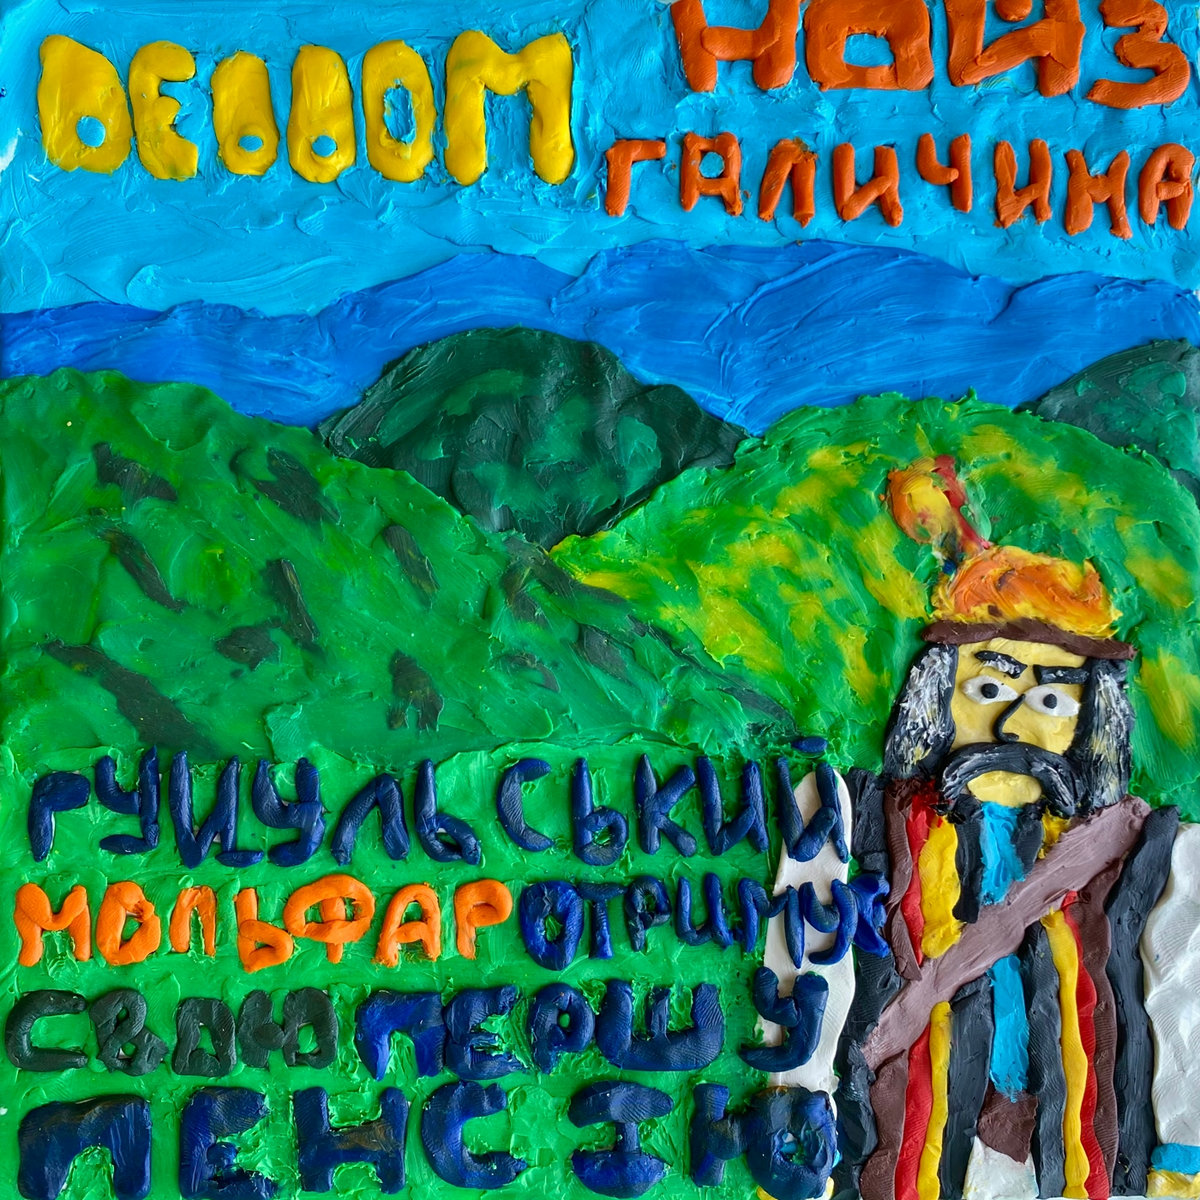 НОЙЗ
ГАЛИЧИНА
ГУЦУЛЬСЬКИЙ
МОЛЬФАР ОТРИМУЄ
СВОЮ ПЕРШУ
ПЕНСІЮ